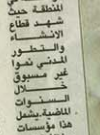 المنطقة حيث
شهد قطاع
الانشاء
والتطور
المدني نموا
غير مسبوق
خلال
السنوات
الماضية.يشمل
هذا مؤسسات